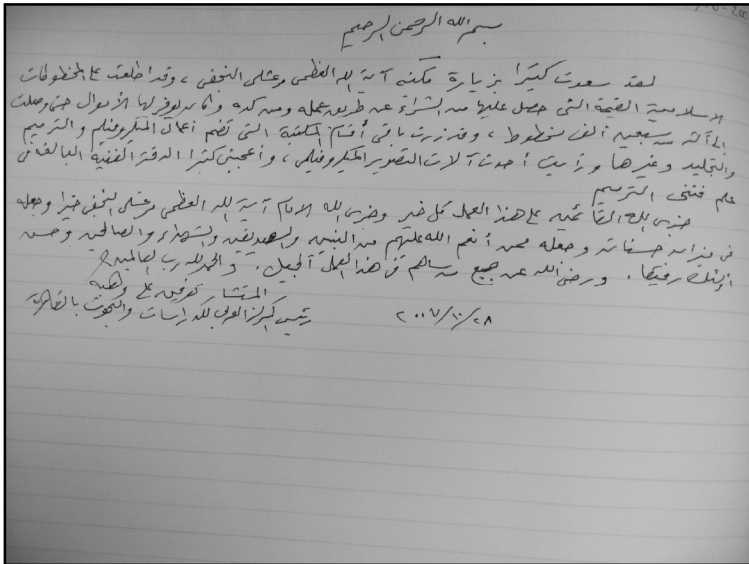 بسم الله الرحمن الرحيم
لقد سعدت كثيرا بزيارة مكتبه آية الله العظمى مرعشلى النجفى ، وقد اطلعت على المخطوطات
الاسلامية القيمة التى حصل عليها من الشراء عن طريق عمله ومن كده وأنه يوفر لها الأموال حتى وصلت
الى أكثر من سبعين ألف مخطوط ، وقد زرت باقى أقسام المكتبة التى تضم أعمال الميكروفيلم والترميم
والتجليد وغيرها ورأيت أحدث آلات التصوير الميكروفيلمى ، وأعجبنى كثيرا الدقة الفنية البالغة فى
علم فنى الترميم
جزى الله القائمين على هذا العمل كل خير وجزى الله الامام آية الله العظمى مرعشلى النجفى خيرا وجعله
فى ميزان حسناته وجعله ممن أنعم الله عليهم من النبيين والصديقين والشهداء والصالحين وحسن
أولئك رفيقا . ورضى الله عن جميع من ساهم فى هذا العمل الجليل . والحمد لله رب العالمين
المستشار توفيق على وهبه
رئيس المركز العربى للدراسات والبحوث بالقاهرة
٢٠٠٧/١٠/٢٨